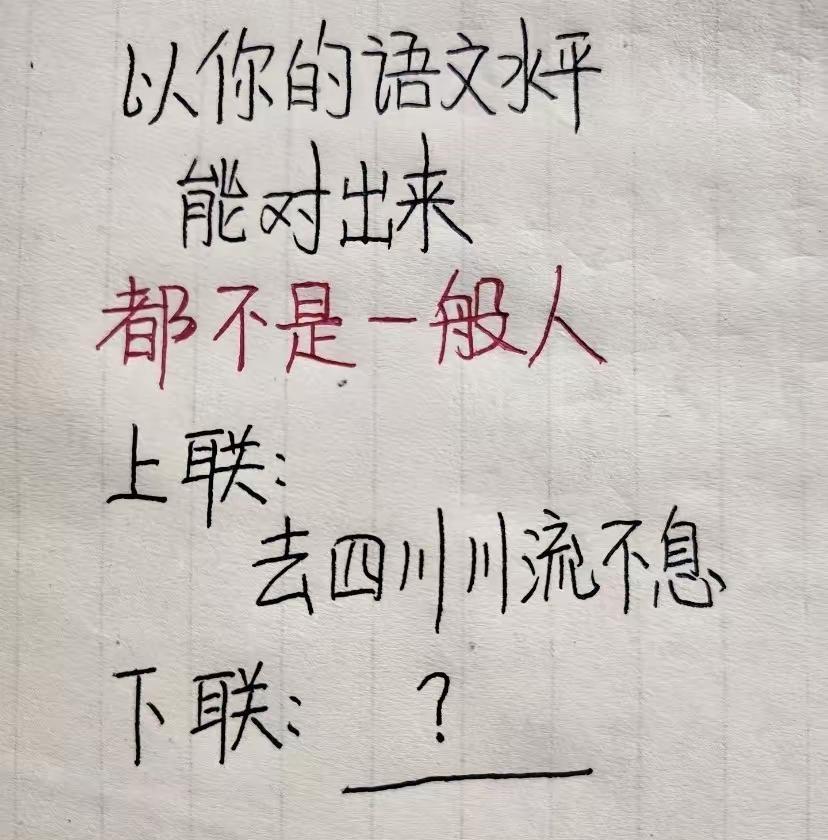 以你的语文水平
能对出来
都不是一般人
上联:
去四川川流不息
下联: ?